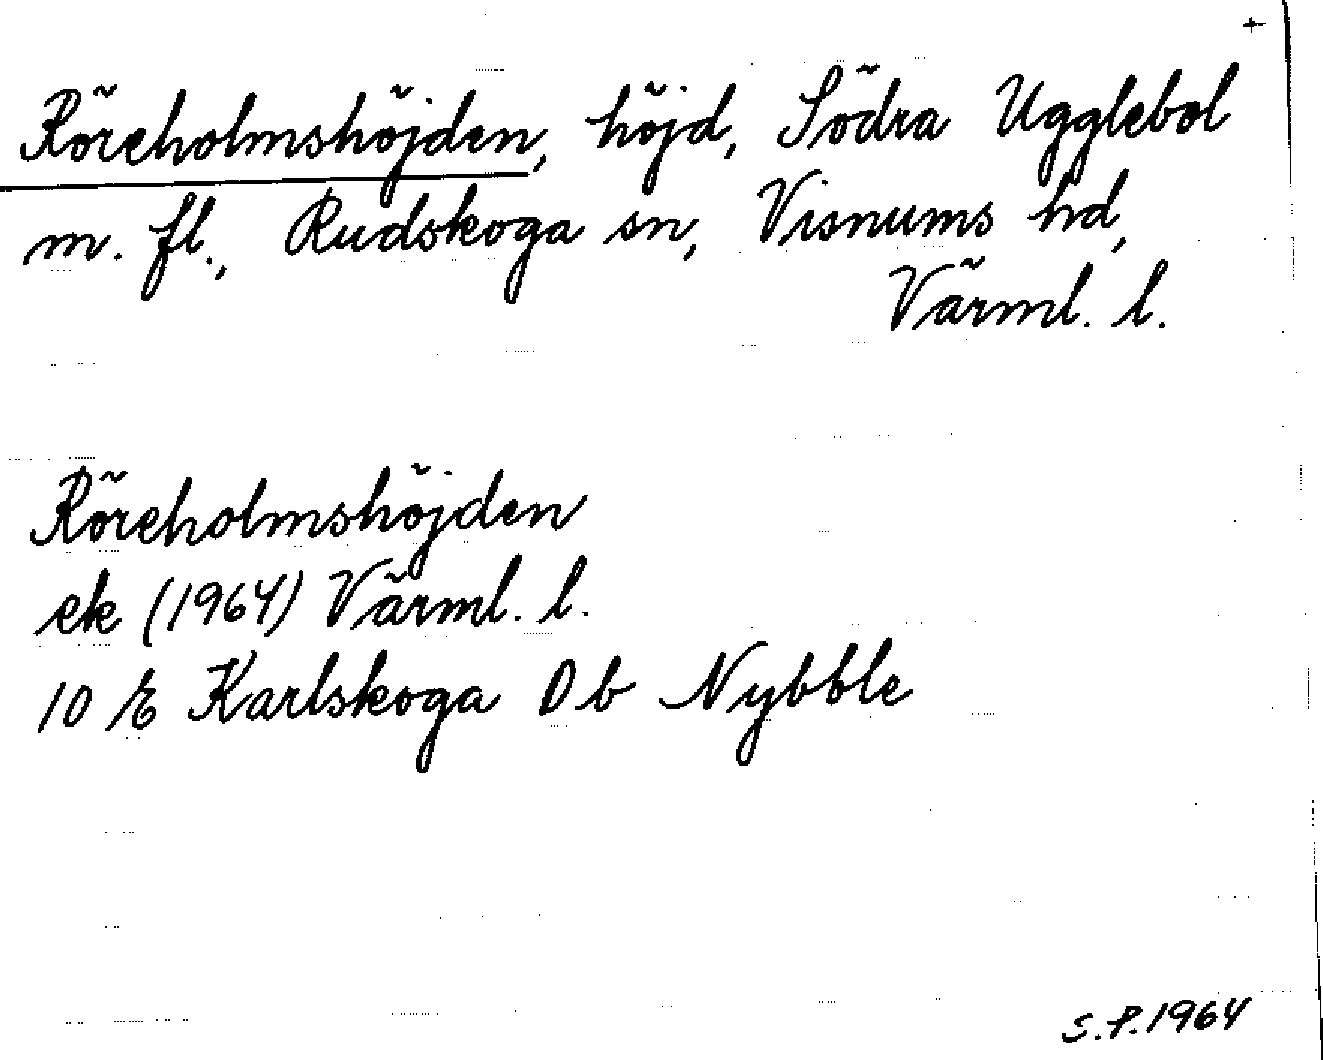 +
Röreholmshöjden, höjd, Södra Ugglebol
m. fl., Rudskoga sn, Visnums hd,
Värml. l.
Röreholmshöjden
ek (1964) Värml. l.
10 E Karlskoga D b Nybble
S.P. 1964